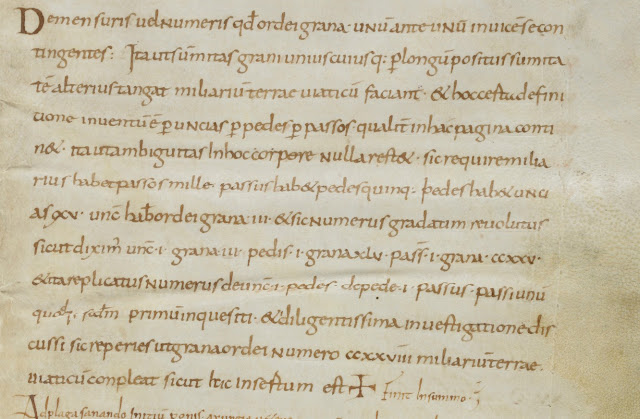 De mensuris vel numeris qđ ordei grana · unū ante unū invicē se con
tingentes; Ita ut summitas grani uniuscuiusq; ꝑ longū positus summita
tē alterius tangat miliariū terrae viaticū faciant · & hoc est
tione inventū ē ꝑ uncias ꝑ pedes ꝑ passos qualit̄ in hac pagina conti
n& · ita ut ambiguitas in hoc corpore nulla rest& · sic require milia
rius habet passos mille · passus hab& pedes quinq; pedes hab& unci
as xv · unc̄ hab& ordei grana · iii · & sic numerus gradatum revolutus
sicut diximꝰ unc̄ · i · grana · iii · pedis · i · grana xlv · pass̄ · i · grana · ccxxv ·
& ita replicatus numerus de unc̄ · i · pedes · de pede · i · passus · passi unū
primū inquesiti · & diligentissima investigatione dis
cussi sic reperies ut grana ordei numero ccxxviii miliariū terrae ·
viaticū conpleat sicut hic insertum est · Finit
Ad plaga sanando initiū